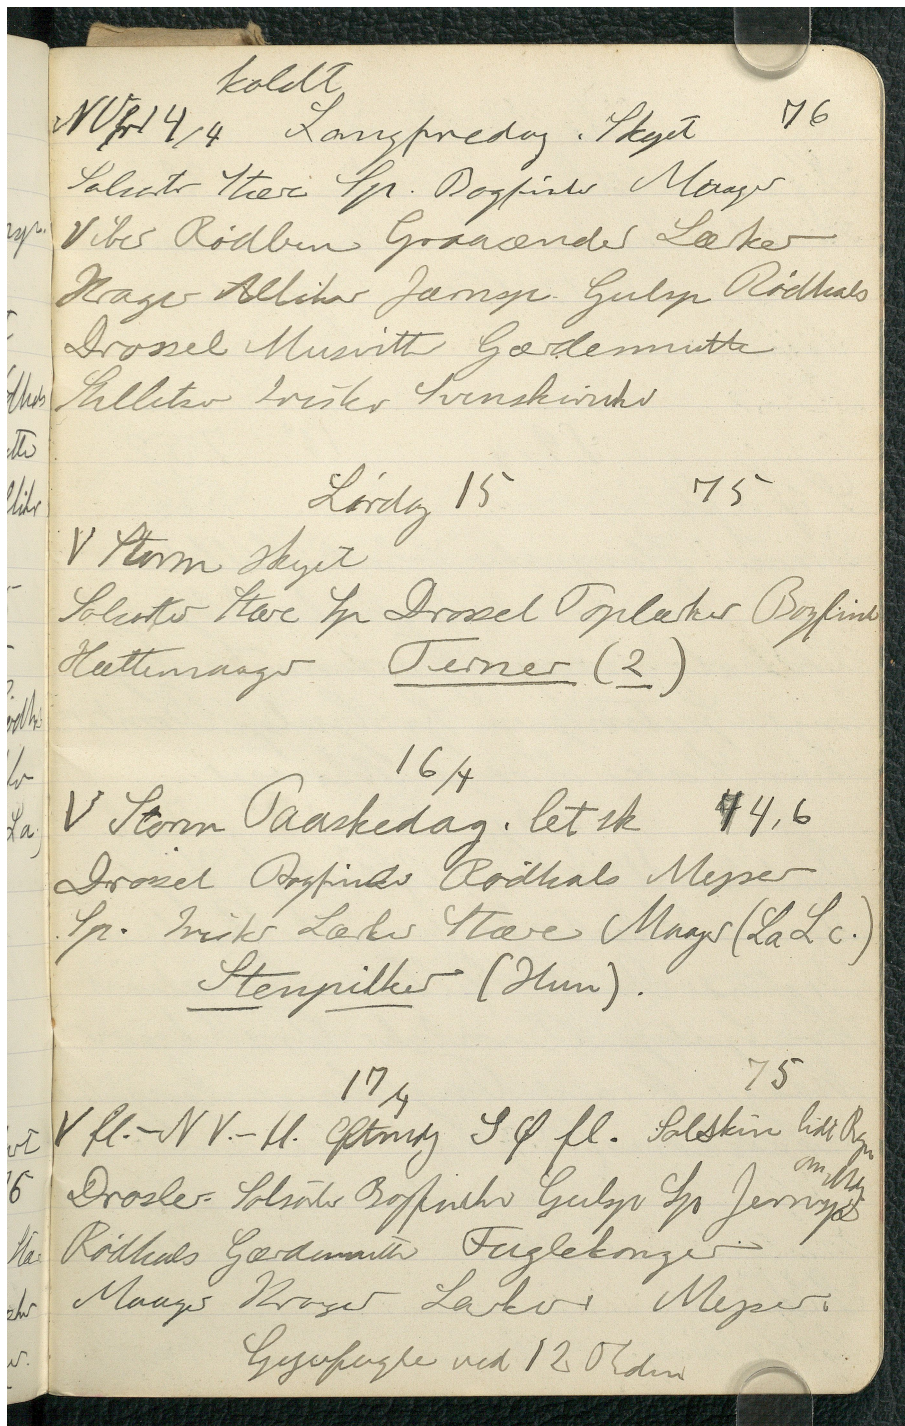 koldt
NV fr 14/4 Langfredag. Skyet 76
Solsorte Stære Sp. Bogfinke Maager
Viber Rødben Graaænder Lærker
Krager Alliker Jærnsp. Gulsp Rødhals
Drossel Musvitte Gærdesmutte
Stillitser Irisker Svenskirisker
Lørdag 15 75
V Storm skyet
Solsorte Stære Sp Drossel Toplærker Bogfink
Hættemaager Terner (2)
16/4
V Storm Paaskedag. let sk 74,6
Drossel Bogfinke Rødhals Mejser
Sp. Irisker Lærker Stære Maager (La L c.)
Stenpikker (Hun).
17/4 75
V fl. - NV. - fl. Eftmdg SØ fl. Solskin lidt Regn
Drosler Solsorte Bogfinke Gulsp Sp Jernsp
Rødhals Gærdesmutte Fuglekonger
Maager Krager Lærker Mejser
ved 12 Tiden